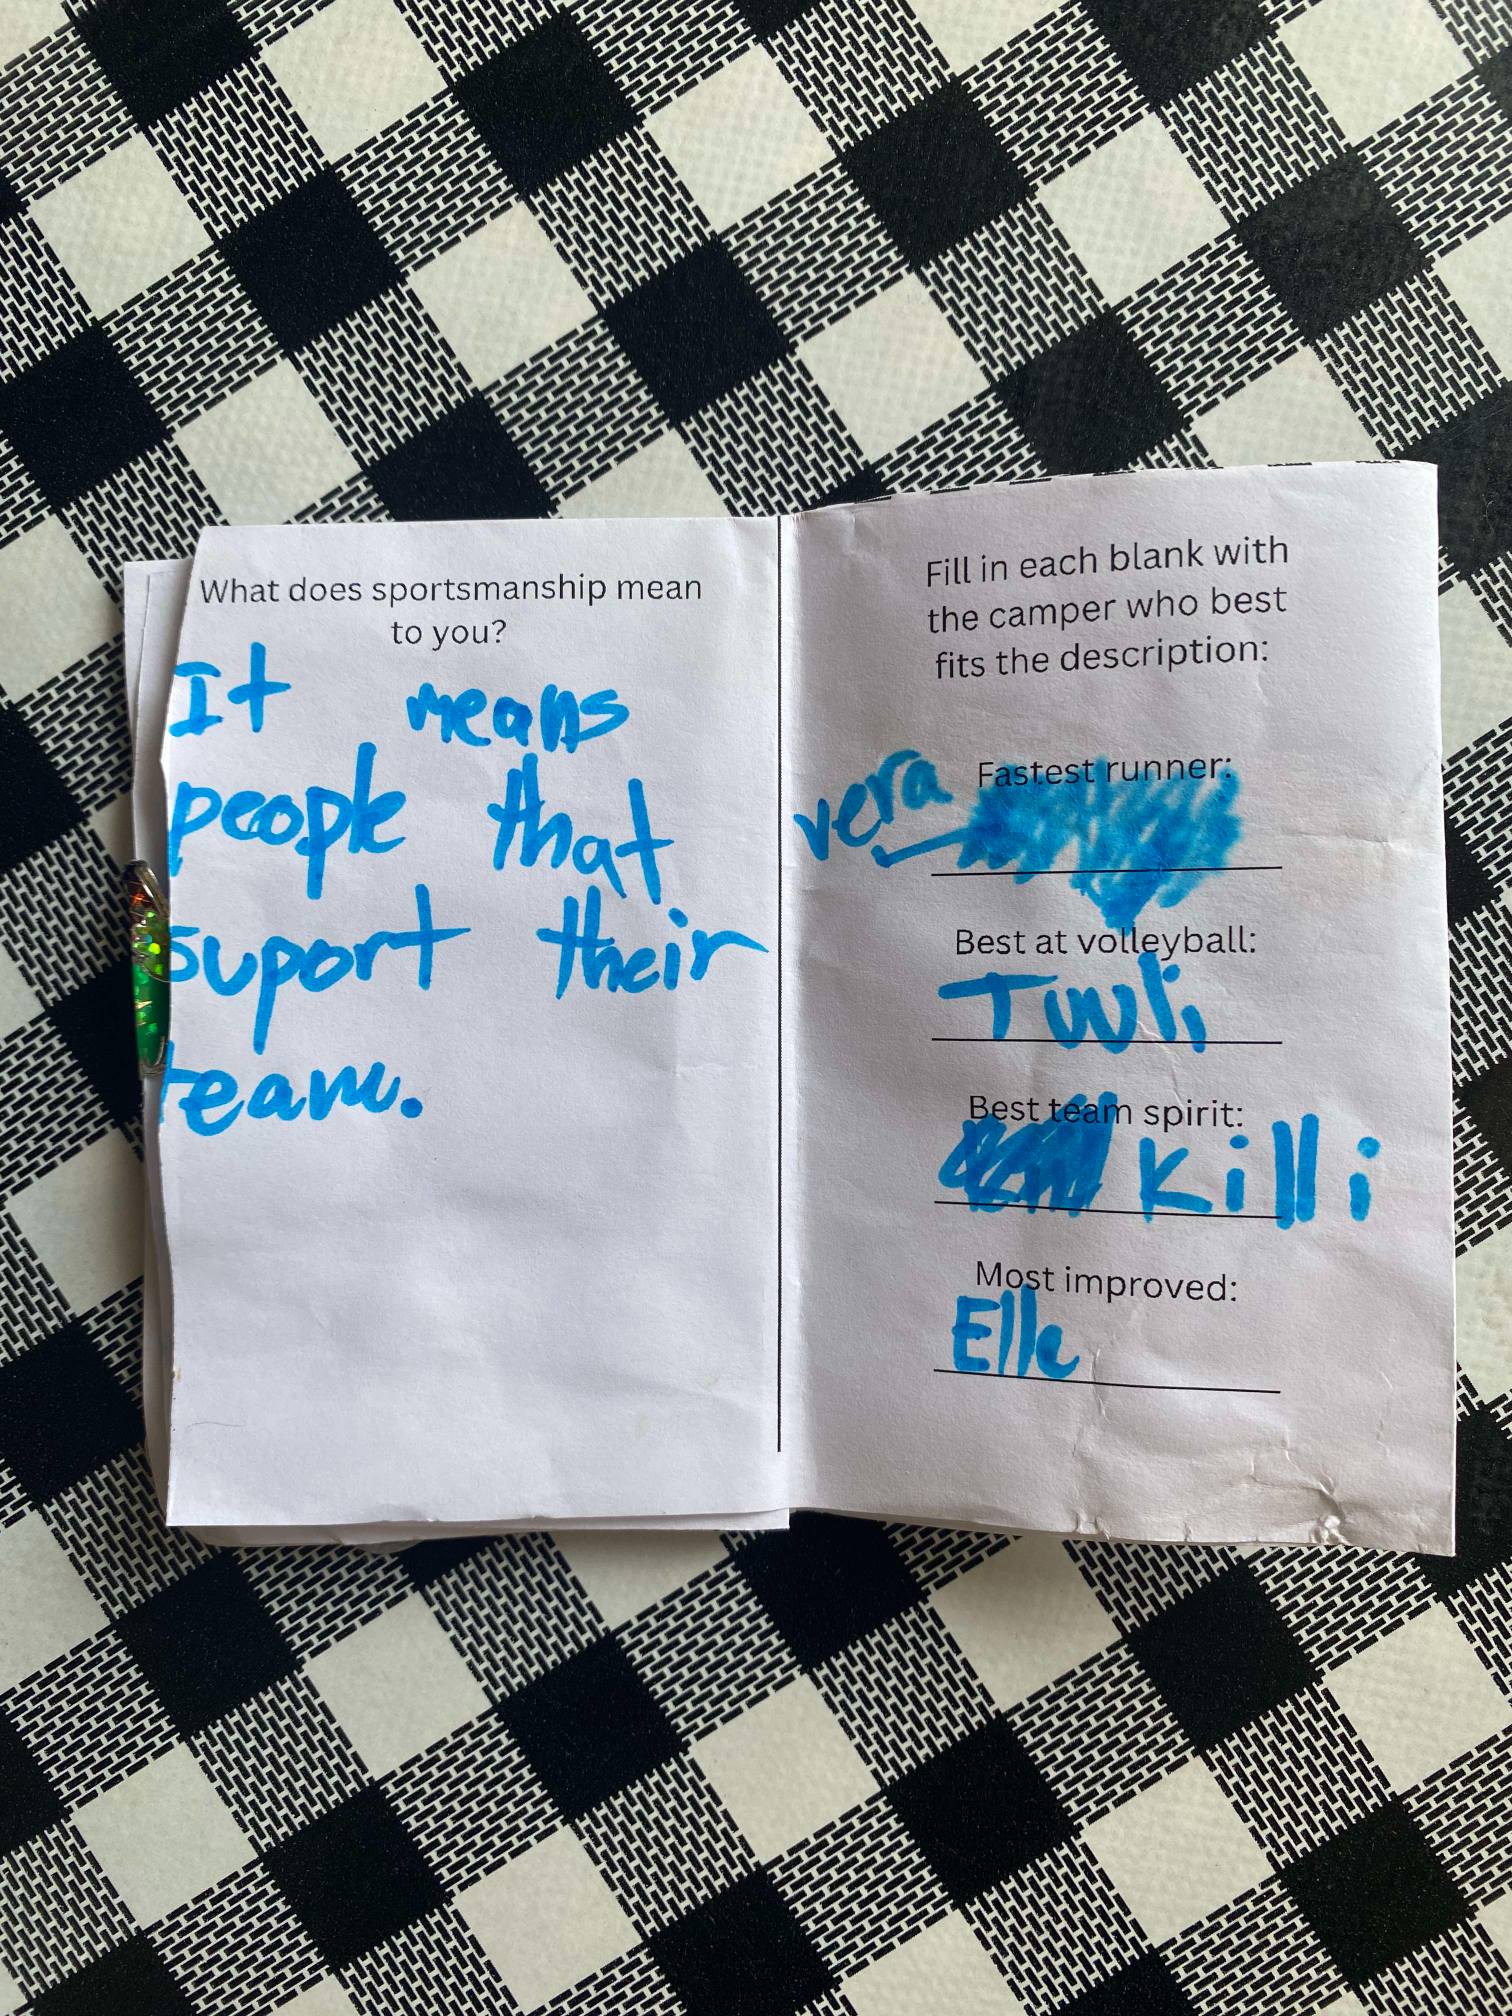 What does sportsmanship mean
to you?
It means
people that
suport their
team.
Fill in each blank with
the camper who best
fits the description:
Fastest runner:
vera
Best at volleyball:
Tuuli
Best team spirit:
Killi
Most improved:
Elle